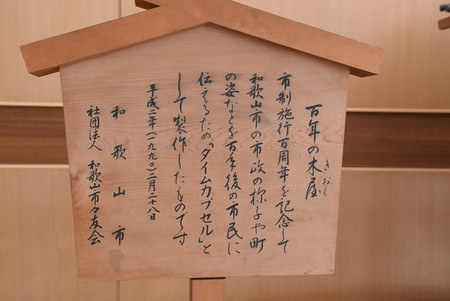 百年の木屋
きおく
市制施行百周年を記念して
和歌山市の市政の様子や町
の姿などを百年後の市民に
伝えるための「タイムカプセル」と
して製作したものです
平成二年(一九九〇)二月二十八日
和歌山市
社団法人 和歌山市夕友会